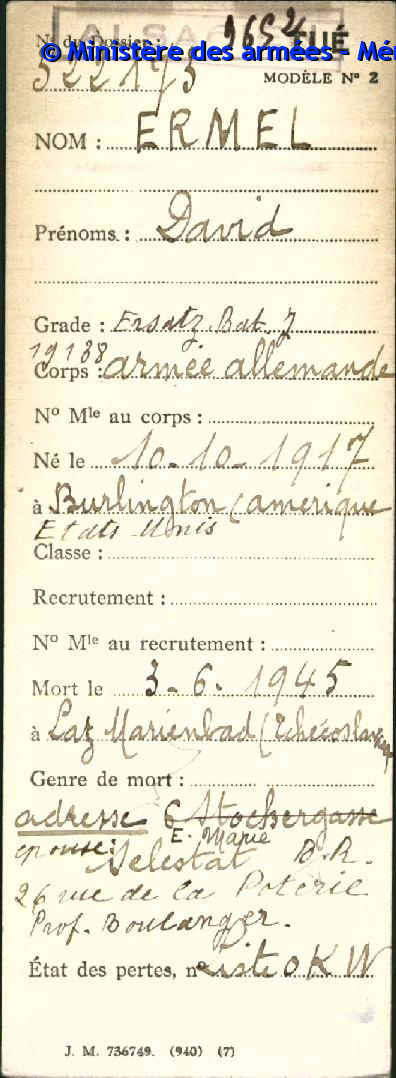 ALSACIEN
N° du Dossier :
9652
TUÉ
© Ministère des armées - Mém
522175
MODÈLE N° 2
NOM : ERMEL
Prénoms : David
Grade : Ersatz. Bat. 7
19138
Corps : armée allemande
N° Mle au corps :
Né le 10-10-1917
à Burlington (amerique
Etats Unis
Classe :
Recrutement :
N° Mle au recrutement :
Mort le 3-6-1945
à Laz Marienbad (Tchécoslovaquie
Genre de mort :
adresse 6 Stochergasse
épouse: E. Marie
Selestat B.R.
26 rue de la Poterie
Prof. Boulanger.
État des pertes, n° Liste OKW
J. M. 736749. (940) (7)